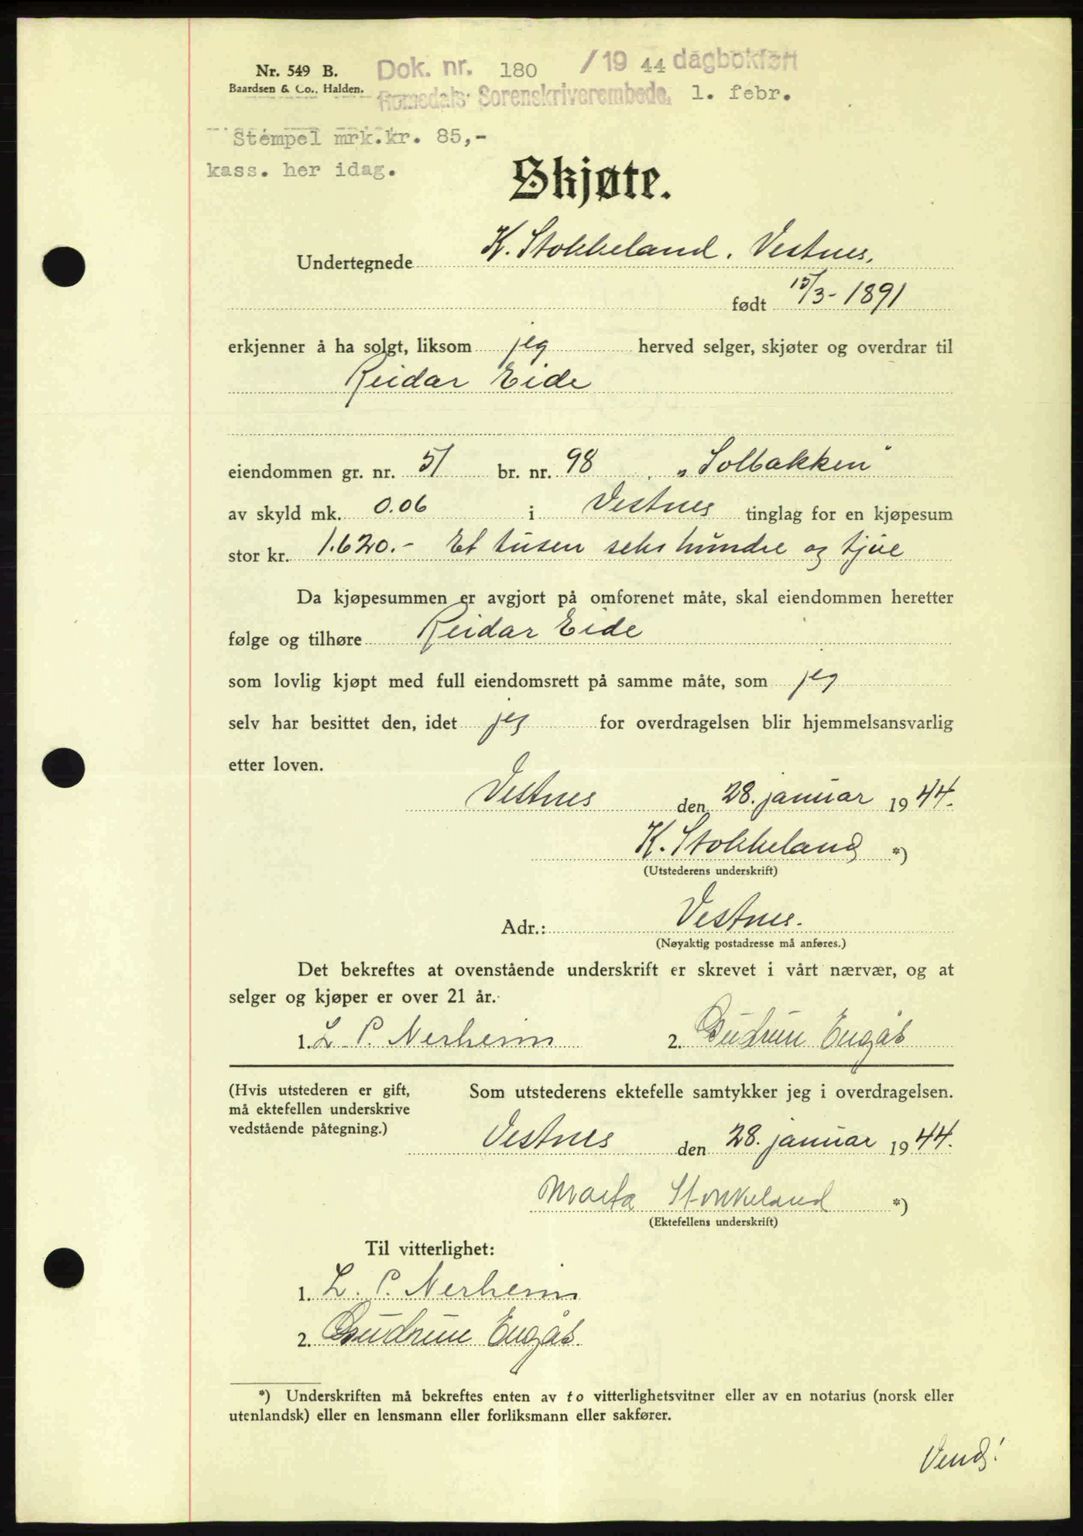 Nr. 549 B.
Baardsen & Co., Halden.
Dok. nr. 180 /19 44 dagbokført
Romsdals Sorenskriverembede, 1. febr.
Stempel mrk.kr. 85,-
kass. her idag.
Skjøte.
Undertegnede K. Stokkeland. Vestnes.
født 15/3-1891
erkjenner å ha solgt, liksom jeg herved selger, skjøter og overdrar til
Reidar Eide
eiendommen gr. nr. 51 br. nr. 98 „Solbakken"
av skyld mk. 0.06 i Vestnes tinglag for en kjøpesum
stor kr. 1.620.- Et tusen seks hundre og tjue
Da kjøpesummen er avgjort på omforenet måte, skal eiendommen heretter
følge og tilhøre Reidar Eide
som lovlig kjøpt med full eiendomsrett på samme måte, som jeg
selv har besittet den, idet jeg for overdragelsen blir hjemmelsansvarlig
etter loven.
Vestnes den 28. januar 1944.
K. Stokkeland *)
(Utstederens underskrift)
Adr.: Vestnes.
(Nøyaktig postadresse må anføres.)
Det bekreftes at ovenstående underskrift er skrevet i vårt nærvær, og at
selger og kjøper er over 21 år.
1. L. P. Nerheim 2. Gudrun Engås
(Hvis utstederen er gift,
må ektefellen underskrive
vedstående påtegning.)
Som utstederens ektefelle samtykker jeg i overdragelsen.
Vestnes den 28. januar 1944.
Marta Stokkeland *)
(Ektefellens underskrift)
Til vitterlighet:
1. L. P. Nerheim
2. Gudrun Engås.
*) Underskriften må bekreftes enten av to vitterlighetsvitner eller av en notarius (norsk eller
utenlandsk) eller en lensmann eller forliksmann eller sakfører.
Vend!